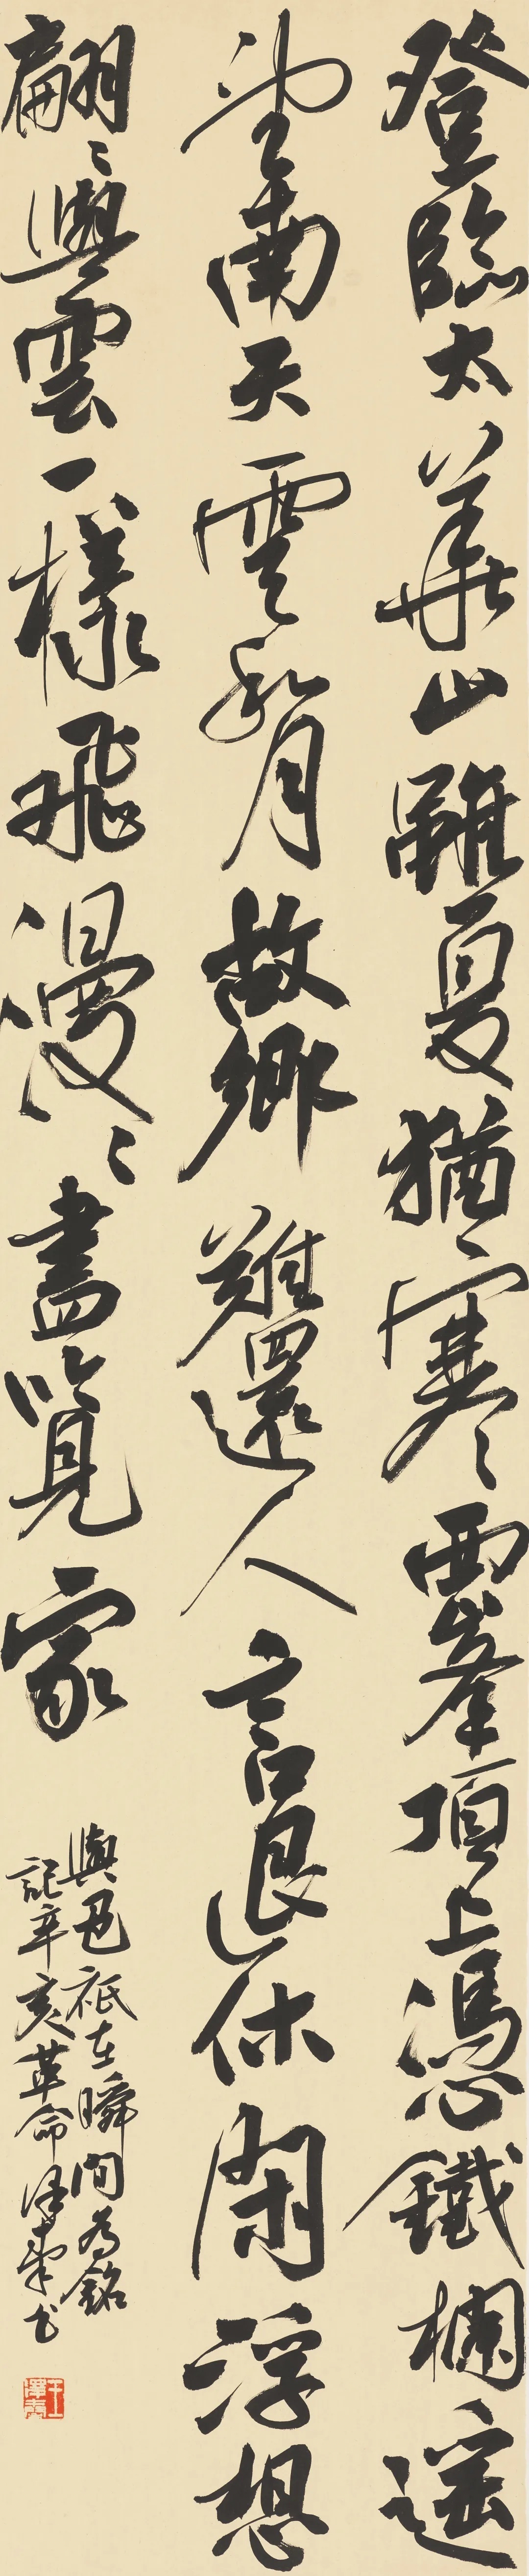 登臨太華山雖夏猶寒〻西峯頂上憑鐵欄遥
望南天雲和月故鄉難還人言退休閑浮想
翩〻與雲一樣飛漫〻盡覽家
與邑祇在瞬間為銘
記辛亥革命澤東書